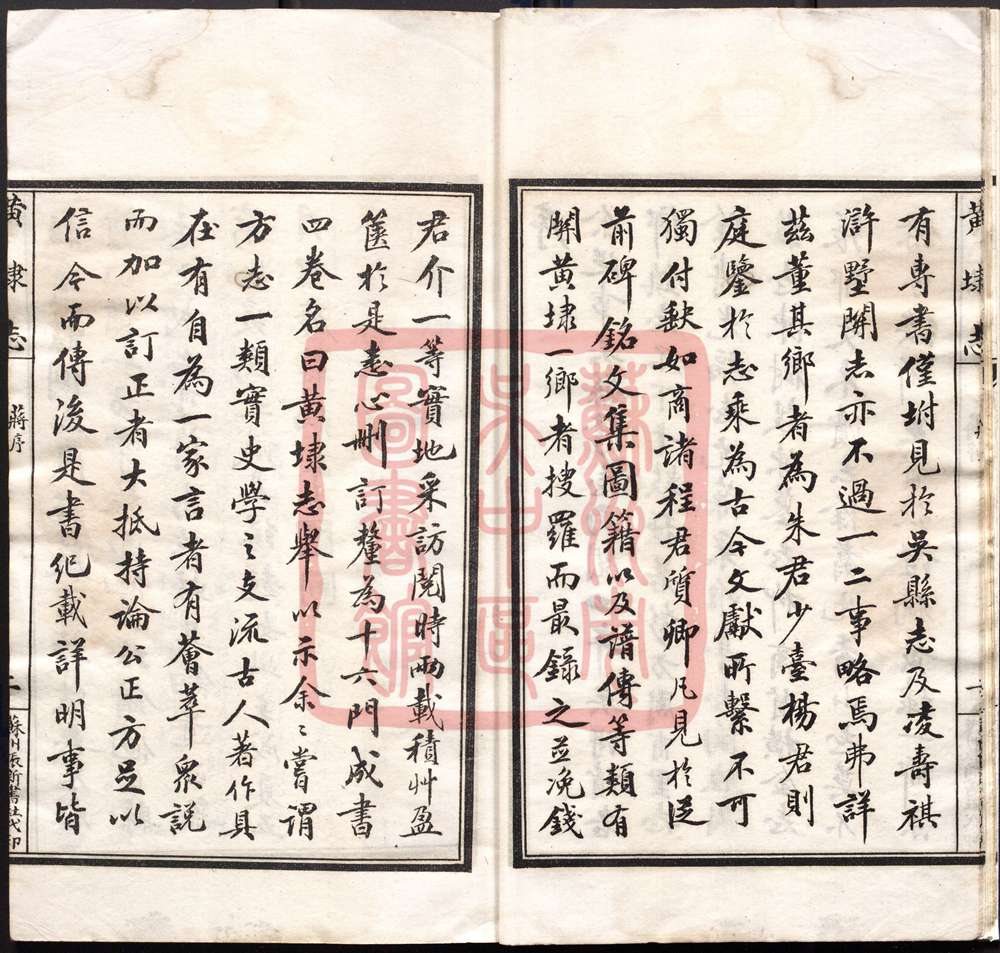 有專書僅坿見於吳縣志及凌壽祺
滸墅關志亦不過一二事略焉弗詳
茲董其鄉者為朱君少臺楊君則
庭鑒於志乘為古今文獻所繫不可
獨付缺如商諸程君質卿凡見於從
前碑銘文集圖籍以及譜傳等類有
關黃埭一鄉者搜羅而最錄之並浼錢
君介一等實地采訪閱時兩載積艸盈
篋於是悉心刪訂釐為十六門成書
四卷名曰黃埭志舉以示余余嘗謂
方志一類實史學之支流古人著作具
在有自為一家言者有薈萃眾說
而加以訂正者大抵持論公正方足以
信今而傳後是書紀載詳明事皆
黃埭志
黃埭志
蔣序
二
蘇州振新書社代印
蘇州市
吳中區
圖書館